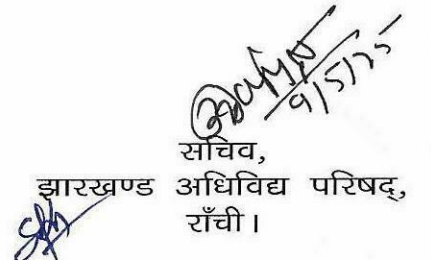 9/5/25
सचिव,
झारखण्ड अधिविद्य परिषद्,
राँची।